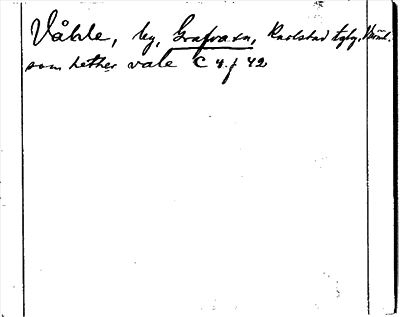 Våhle, by, Grafvasn, Karlstad tgbg. Värml.
som hether vale C 4. f 42